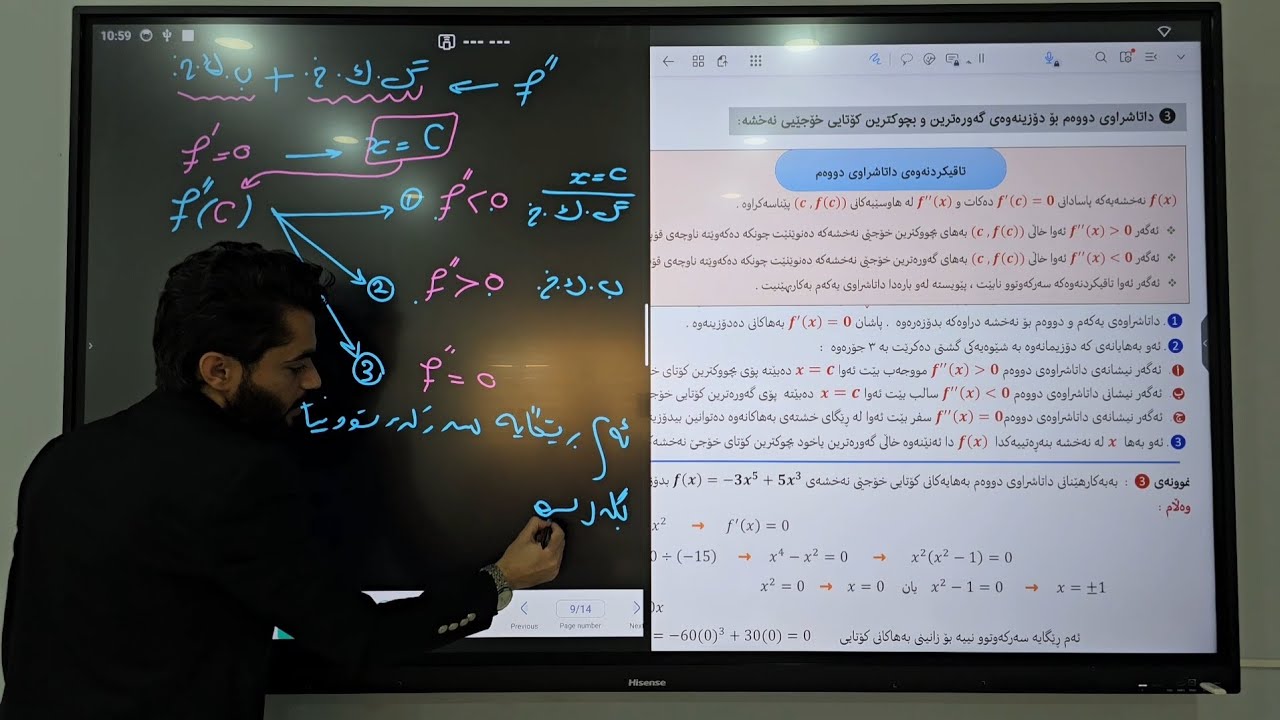 10:59
f'' ← گ.ك.خ + ب.ك.خ
f'=0 → x = C
f''(C)
① f''<0
x=c
گ.ك.خ
② f''>0 ب.ك.خ
③ f''=0
ئەم ڕێگایە سەرکەوتوو نیا
Previous
9/14
Page number
Next
❸ داتاشراوی دووەم بۆ دۆزینەوەی گەورەترین و بچوکترین کۆتایی خۆجێیی نەخشە:
تاقیکردنەوەی داتاشراوی دووەم
f(x) نەخشەیەکە پاسادانی f'(c) = 0 دەکات و f''(x) لە هاوسێیەکانی (c , f(c)) پێناسەکراوە .
ئەگەر f''(x) > 0 ئەوا خاڵی (c , f(c)) بەهای بچووکترین خۆجێی نەخشەکە دەنوێنێت چونکە دەکەوێتە ناوچەی
ئەگەر f''(x) < 0 ئەوا خاڵی (c , f(c)) بەهای گەورەترین خۆجێی نەخشەکە دەنوێنێت چونکە دەکەوێتە ناوچەی
ئەگەر ئەوا تاقیکردنەوەکە سەرکەوتوو نابێت ، پێویستە لەو بارەدا داتاشراوی یەکەم بەکاربهێنیت .
❶ . داتاشراوەی یەکەم و دووەم بۆ نەخشە دراوەکە بدۆزەرەوە . پاشان f'(x) = 0 بەهاکانی دەدۆزینەوە .
❷ . ئەو بەهایانەی کە دۆزیمانەوە بە شێوەیەکی گشتی دەکرێت بە ٣ جۆرەوە :
أ ئەگەر نیشانەی داتاشراوەی دووەم f''(x) > 0 مووجەب بێت ئەوا x = c دەبێتە پۆی بچووکترین کۆتای
ب ئەگەر نیشانی داتاشراوەی دووەم f''(x) < 0 سالب بێت ئەوا x = c دەبێتە پۆی گەورەترین کۆتایی
ج ئەگەر نیشانەی داتاشراوەی دووەم f''(x) = 0 سفر بێت ئەوا لە ڕێگای خشتەی بەهاکانەوە دەتوانین
❸ . ئەو بەها x لە نەخشە بنەڕەتییەکەدا f(x) دا ئەنێنەوە خاڵی گەورەترین یاخود بچوکترین کۆتای خۆجێ
نموونەی ❸ : بەبەکارهێنانی داتاشراوی دووەم بەهایەکانی کۆتایی خۆجێی نەخشەی f(x) = −3x⁵ + 5x³
وەڵام :
x² → f'(x) = 0
0 ÷ (−15) → x⁴ − x² = 0 → x²(x² − 1) = 0
x² = 0 → x = 0 یان x² − 1 = 0 → x = ±1
0x
= −60(0)³ + 30(0) = 0 ئەم ڕێگایە سەرکەوتوو نییە بۆ زانینی بەهاکانی کۆتایی
Hisense